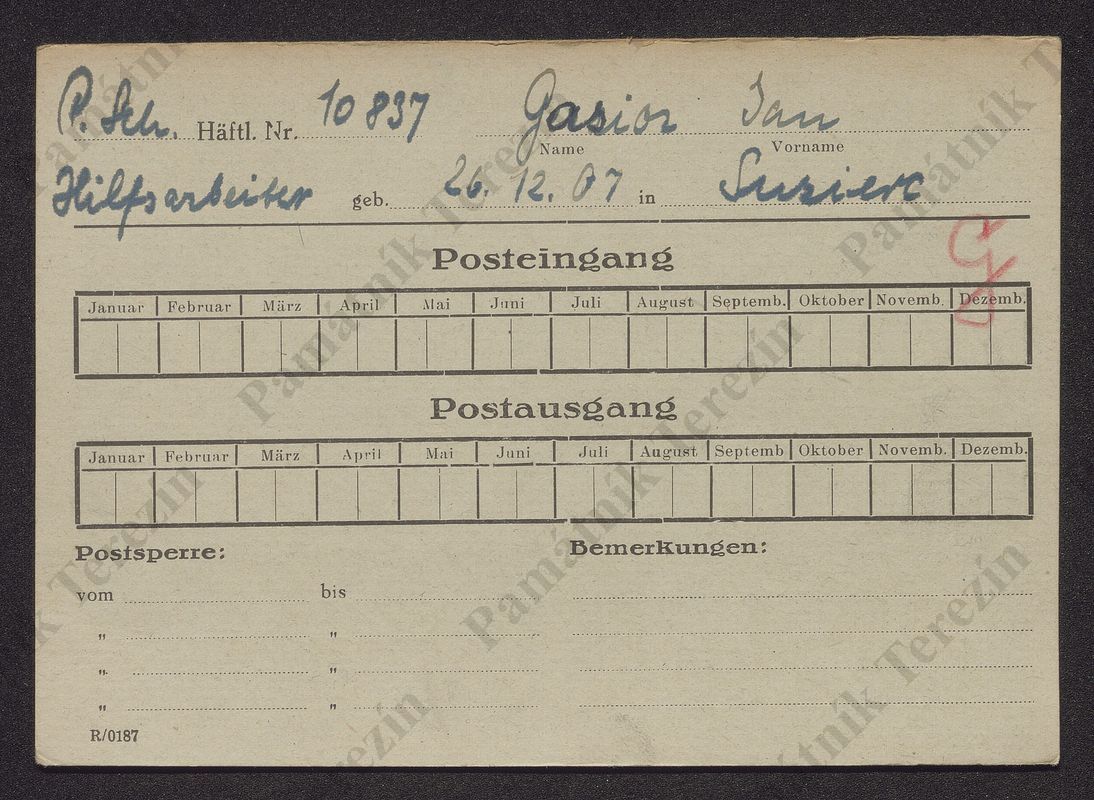 P. Sch. Häftl. Nr. 10837 Gasior Jan
Name Vorname
Hilfsarbeiter geb. 26. 12. 07 in
G
Posteingang
Januar Februar März April Mai Juni Juli August Septemb. Oktober Novemb. Dezemb.
Postausgang
Januar Februar März April Mai Juni Juli August Septemb Oktober Novemb. Dezemb.
Postsperre: Bemerkungen:
vom bis
" "
" "
" "
R/0187
Památník Terezín